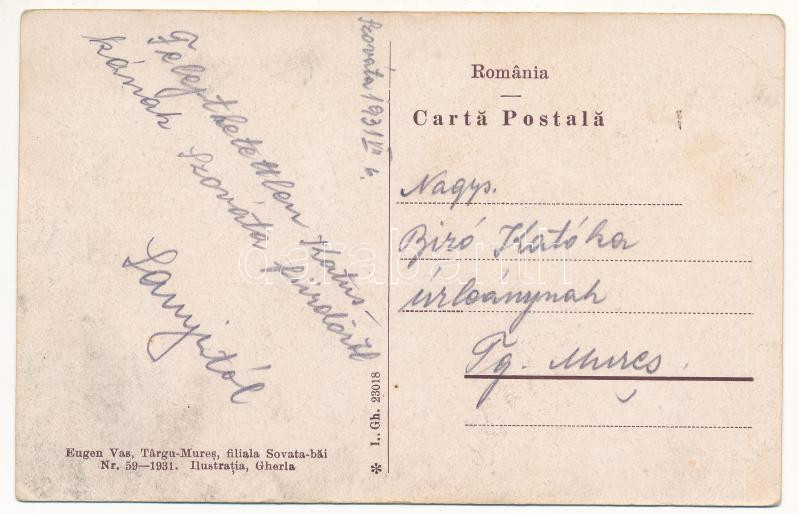 Felejthetetlen Katus-
kának Szováta fürdőről
Sanyitól
Szováta 1931 VII 6.
România
Cartă Postală
Nagys.
Bizó Katóka
úrleánynak
Tg. Mureș
Eugen Vas, Târgu-Mureș, filiala Sovata-băi
Nr. 59—1931. Ilustrația, Gherla
* I.. Gh. 23018
darabanth